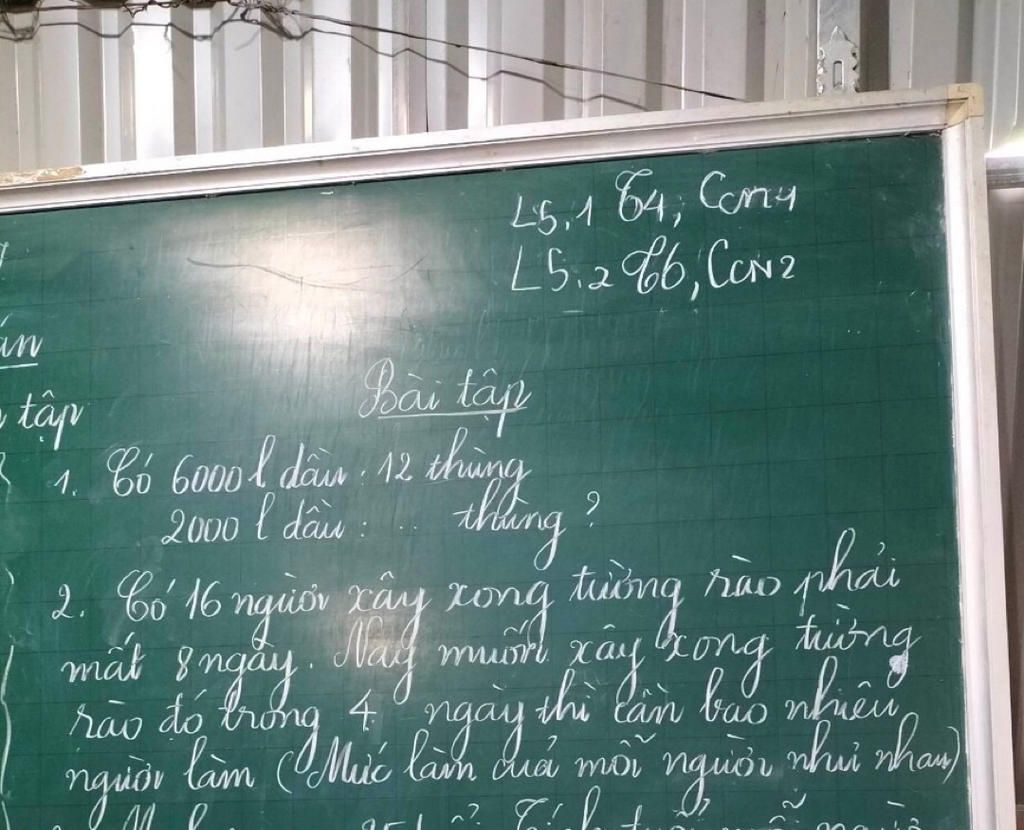 L5.1 T4, CCN4
L5.2 T6, CCN2
tập
Bài tập
1. Có 6000 l dầu : 12 thùng
2000 l dầu : .. thùng ?
2. Có 16 người xây xong tường rào phải
mất 8 ngày. Nay muốn xây xong tường
rào đó trong 4 ngày thì cần bao nhiêu
người làm (Mức làm của mỗi người như nhau)